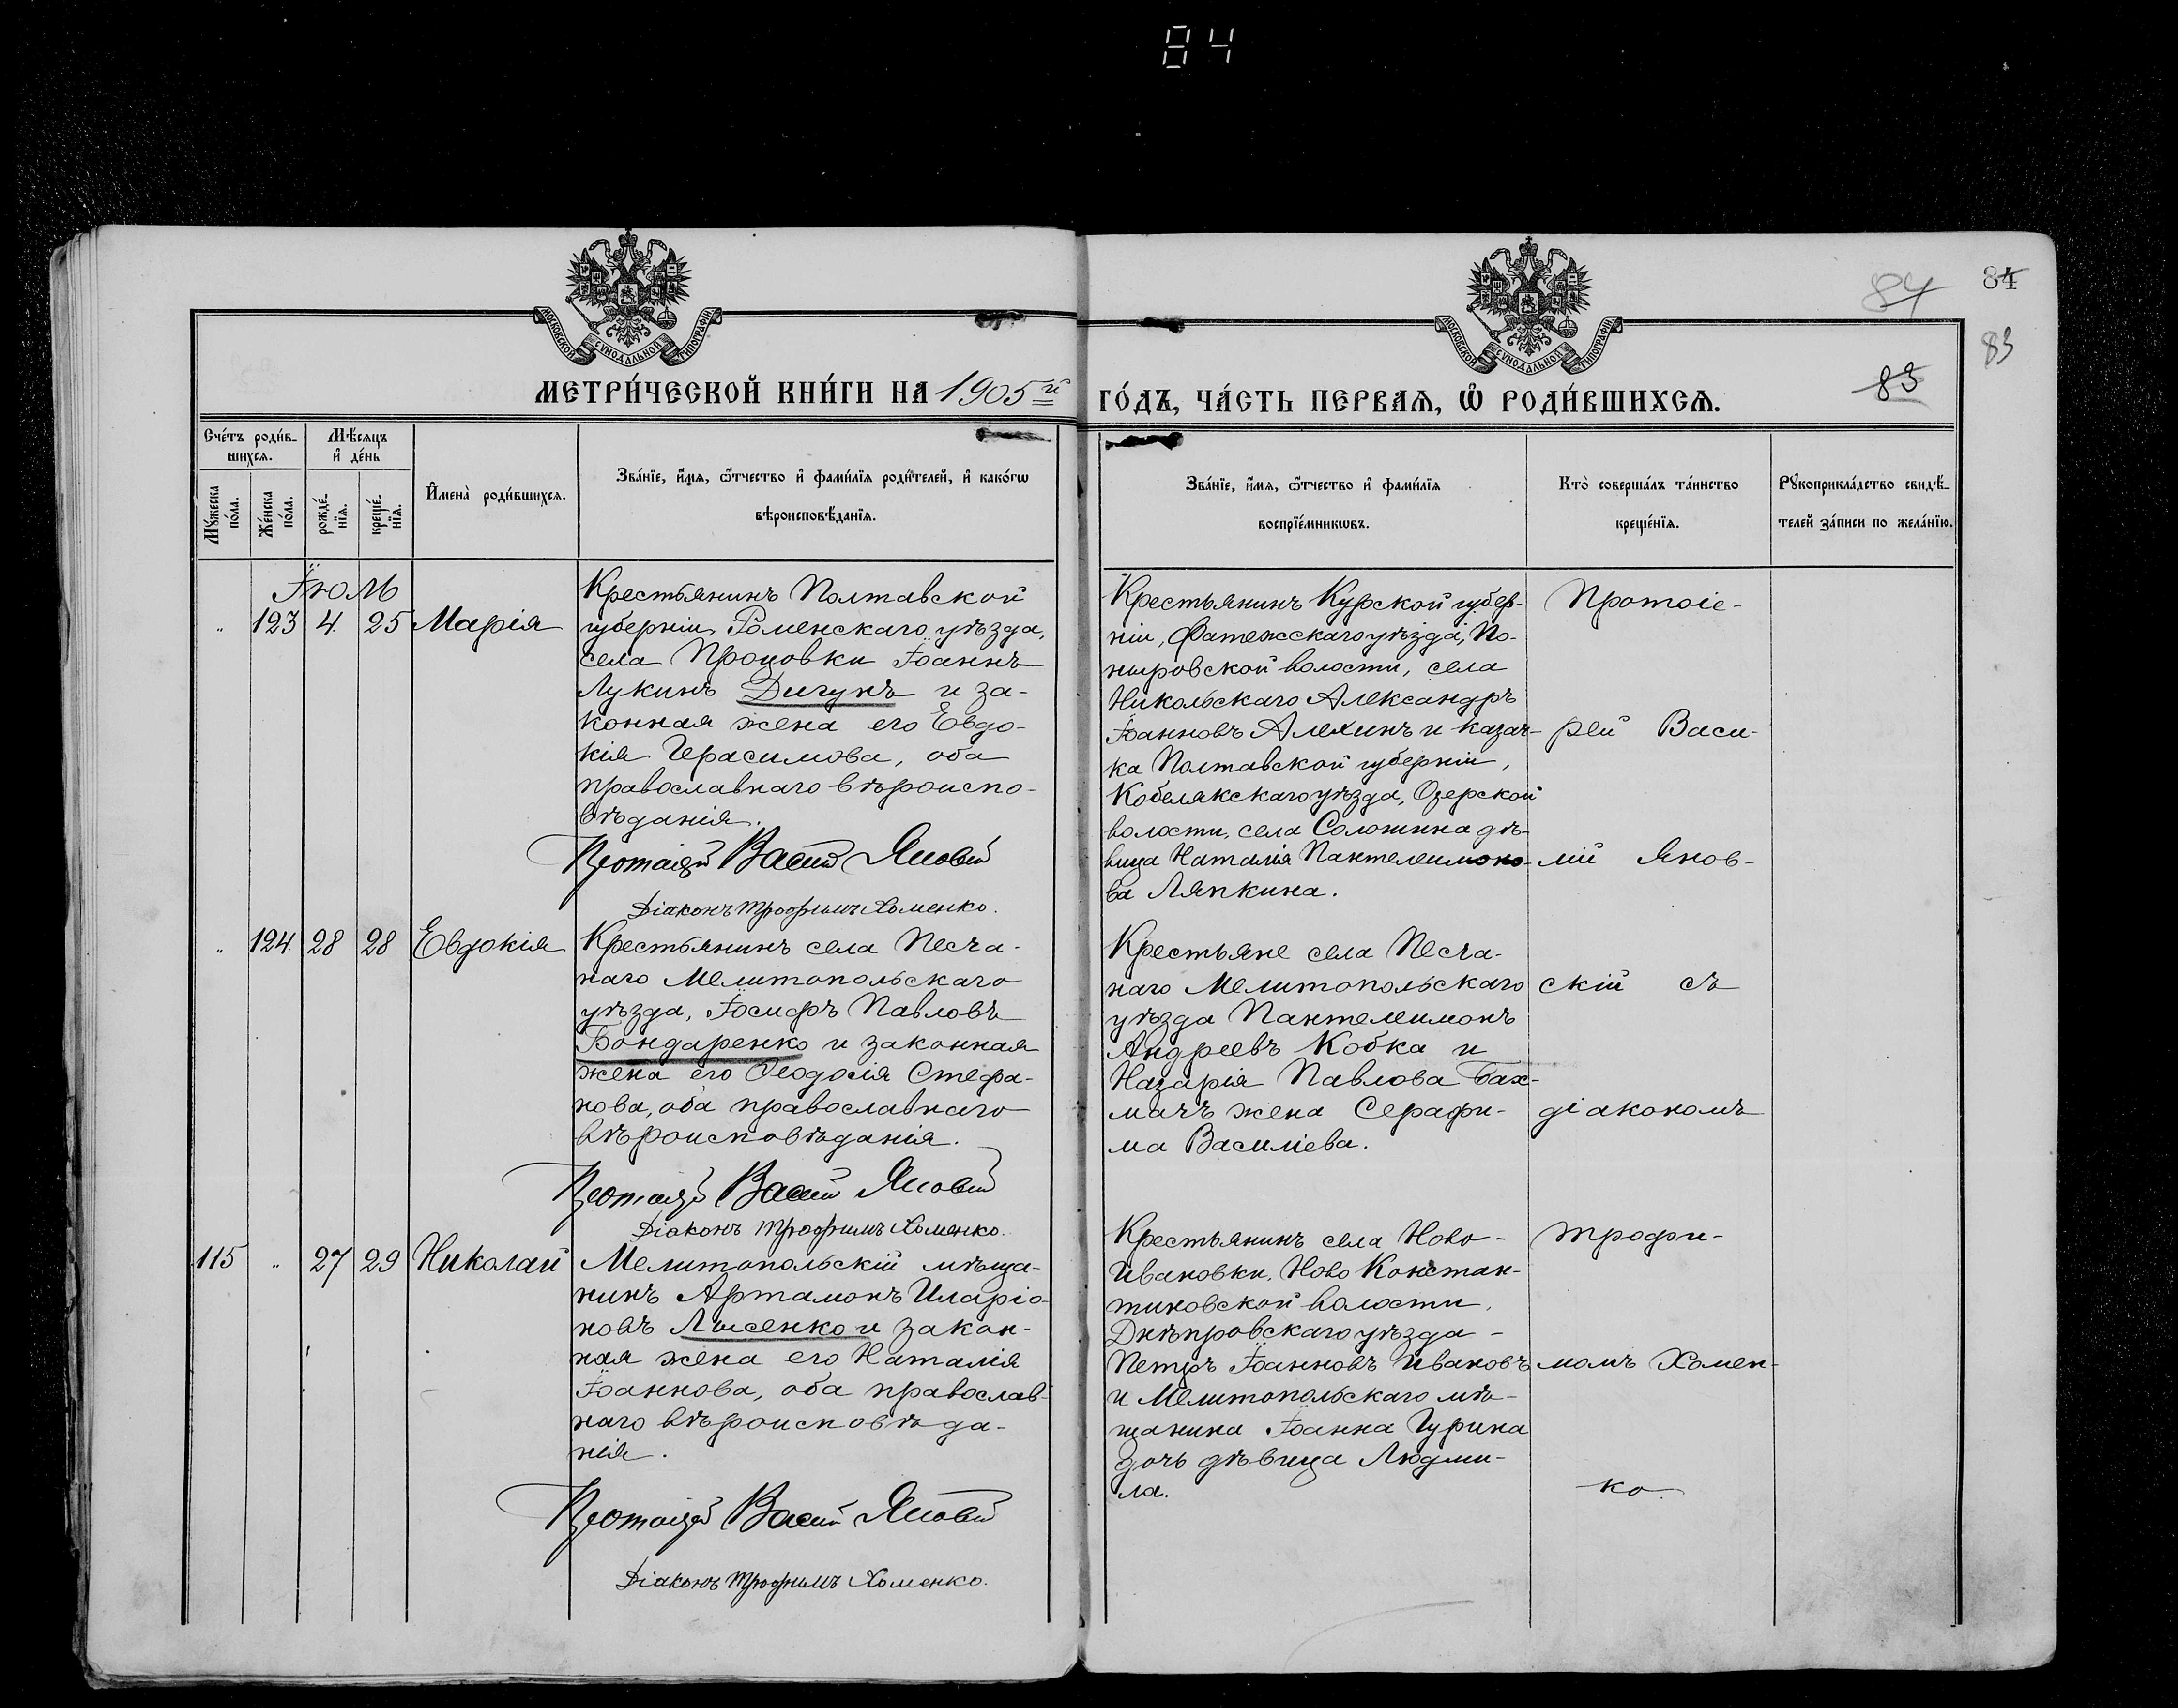 84
84
84
83
83
МОСКОВСКОЙ СѴНОДАЛЬНОЙ ТИПОГРАФІИ
МОСКОВСКОЙ СѴНОДАЛЬНОЙ ТИПОГРАФІИ
МЕТРИ́ЧЕСКОЙ КНИ́ГИ НА 1905й
ГО́ДЪ, ЧА́СТЬ ПЕРВАЯ, Ѡ҆ РОДИ́ВШИХСѦ.
Сче́тъ роди́в-
шихсѧ.
Мѣ́сяцъ
и҆ де́нь
Мꙋ́жеска
по́ла.
Же́нска
по́ла.
рожде́-
нїѧ.
креще́-
нїѧ.
И҆мена̀ роди́вшихсѧ.
Зва́нїе, и҆́мѧ, ѻ҆́тчество и҆ фами́лїѧ роди́телей, и҆ како́гѡ
вѣроисповѣ́данїѧ.
Зва́нїе, и҆́мѧ, ѻ҆́тчество и҆ фами́лїѧ
воспрїе́мникѡвъ.
Кто̀ соверша́лъ та́инство
креще́нїѧ.
Рꙋкоприкла́дство свидѣ́-
телей за́писи по жела́нїю.
Іюль
" 123 4 25 Марія
Крестьянинъ Полтавской
губерніи, Роменскаго уѣзда,
села Процовки Іоаннъ
Лукинъ Дигунъ и за-
конная жена его Евдо-
кія Герасимова, оба
православнаго вѣроиспо-
вѣданія.
Протоіерей Василій Яновскій
Діаконъ Трофимъ Хоменко.
Крестьянинъ Курской губер-
ніи, Фатежскаго уѣзда, По-
ныровской волости, села
Никольскаго Александръ
Іоанновъ Алехинъ и казач-
ка Полтавской губерніи,
Кобелякскаго уѣзда, Озерской
волости, села Солошина дѣ-
вица Наталія Пантелеимоно-
ва Ляпкина.
" 124 28 28 Евдокія
Крестьянинъ села Песча-
наго Мелитопольскаго
уѣзда, Іосифъ Павловъ
Бондаренко и законная
жена его Ѳеодосія Стефа-
нова, оба православнаго
вѣроисповѣданія.
Протоіерей Василій Яновскій
Діаконъ Трофимъ Хоменко.
Крестьяне села Песча-
наго Мелитопольскаго
уѣзда Пантелеимонъ
Андреевъ Кобка и
Назарія Павлова Бах-
мачъ жена Серафи-
ма Василіева.
115 " 27 29 Николай
Мелитопольскій мѣща-
нинъ Артамонъ Иларіо-
новъ Лысенко и закон-
ная жена его Наталія
Іоаннова, оба православ-
наго вѣроисповѣда-
нія.
Протоіерей Василій Яновскій
Діаконъ Трофимъ Хоменко.
Крестьянинъ села Ново-
Ивановки, Ново Констан-
тиновской волости,
Днѣпровскаго уѣзда -
Петръ Іоанновъ Ивановъ
и Мелитопольскаго мѣ-
щанина Іоанна Гурина
дочь дѣвица Людми-
ла.
Протоіе-
рей Васи-
лій Янов-
скій съ
діакономъ
Трофи-
момъ Хомен-
ко.